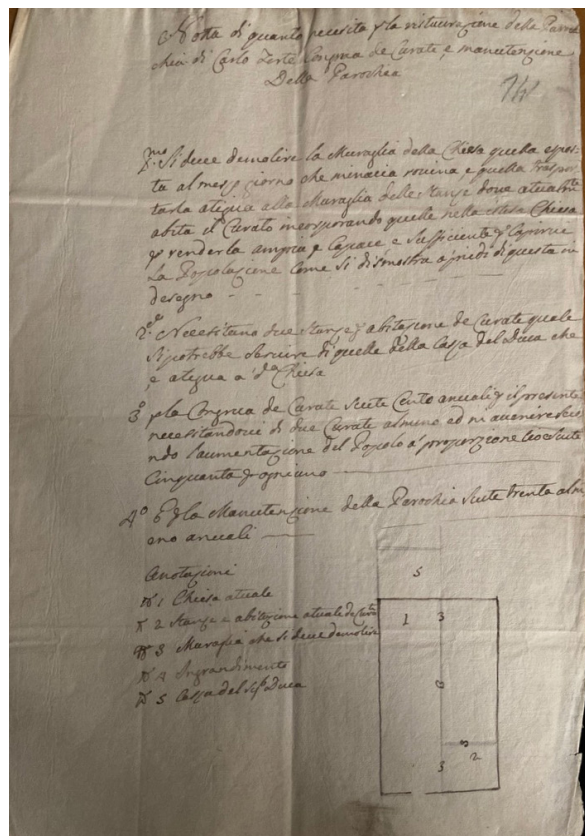 Notta di quanto necesita p la ristaurazione della Parro
chia di Carlo Forte Congrua de Curate, e manutenzione
Della Parochia
P.mo Si deve demolire la Muraglia della Chiesa quella espos-
ta al mezzo giorno che minacia rovina, e quella traspor
tarla ategua alla Muraglia delle Stanze dove atualm.te
abita il Curato incorporando quelle nella istesa Chiesa
p renderla ampia, e capace e sufficiente p Capirvi
La Popolazione come si dismostra a piedi di questa in
desegno
2.do Necesitano due Stanze p abitazione de Curate quale
si potrebbe servire di quelle della Cassa del Duca che
e ategua a d.a Chiesa
3.o p la Congrua de Curate Scute Cento anuali p il presente
necesitandovi di due Curate almeno ed in avenire
ndo l'aumentazione del Popolo a' proporzione Scute
Cinquanta p ogniuno
4.o E p la Manutenzione della Parochia Scute trenta alm
eno anuali
Anotazioni
N 1 Chiesa atuale
N 2 Stanze e abitazione atuale de Curato
N 3 Muraglia che si deve demolire
N 4 Ingrandimento
N 5 Cassa del Sig.r Duca
5
1 3
2
3